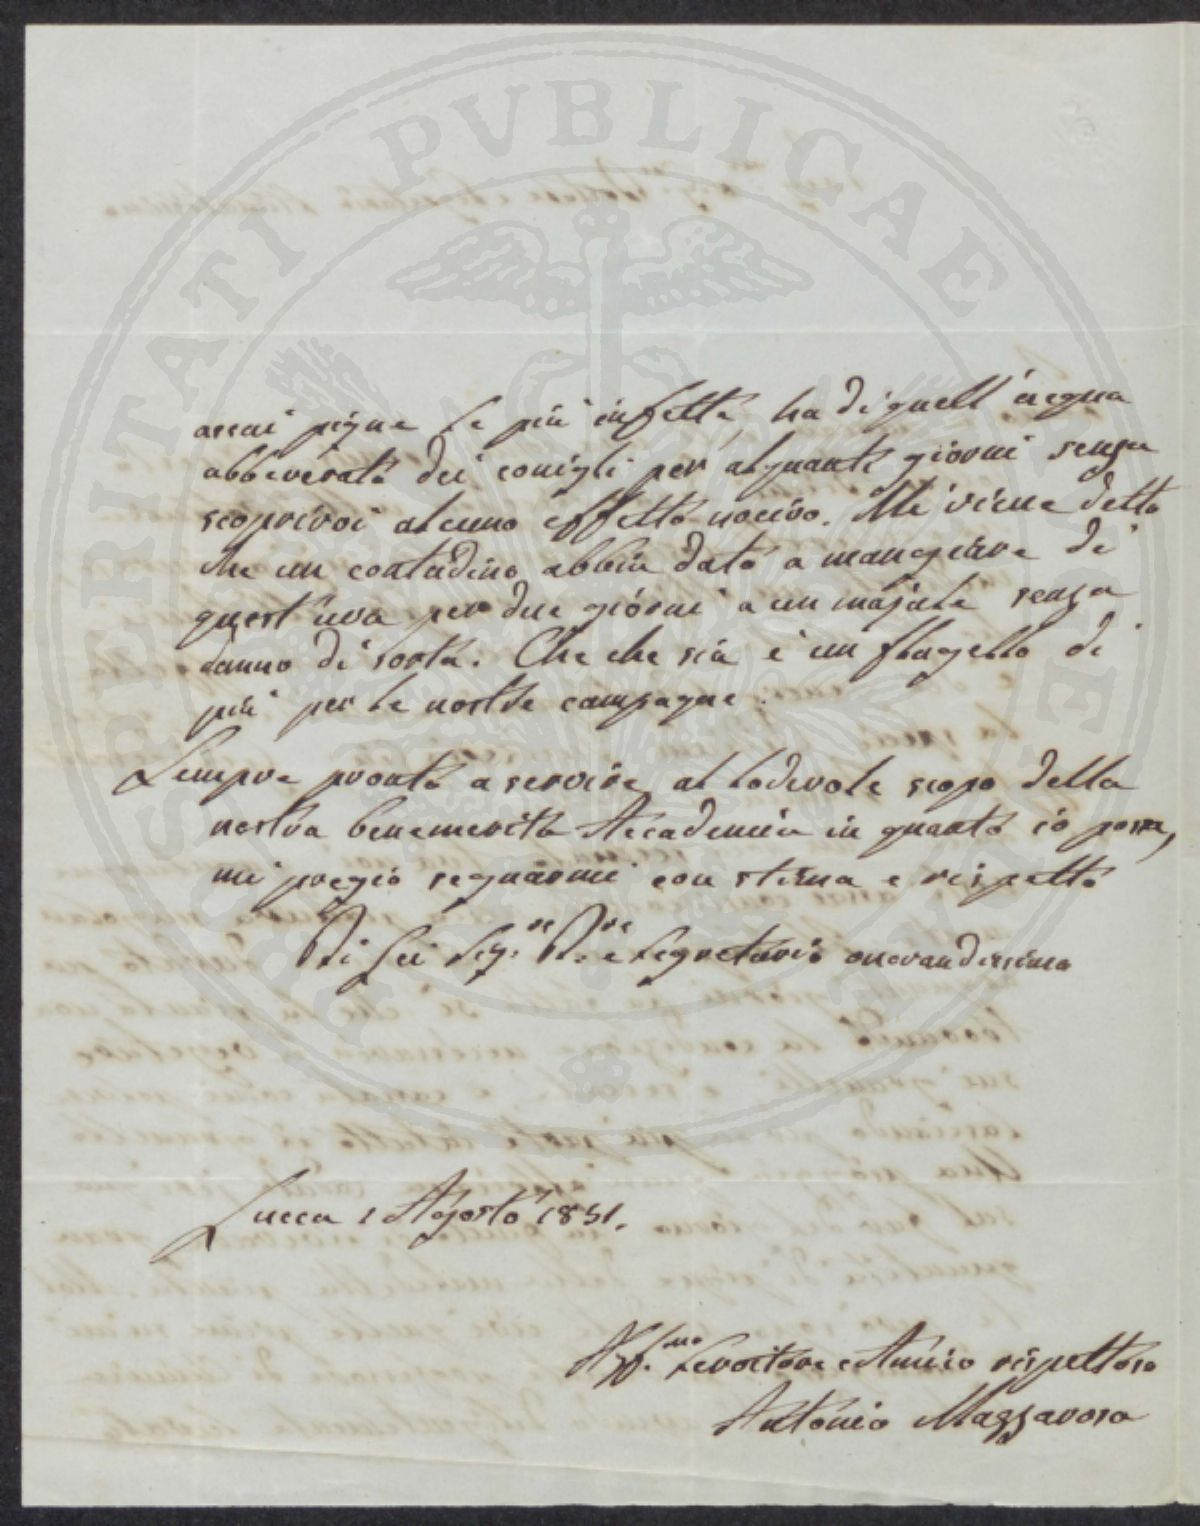 PROSPERITATI PVBLICAE AVGENDAE
assai pigne le più infette, ha di quell'acqua
abbeverato dei conigli per alquanti giorni senza
scoprirvi alcuno effetto nocivo. Mi viene detto
che un contadino abbia dato a mangiare di
quest'uva per due giorni a un majale senza
danno di sorta. Che che sia è un flagello di
più per le nostre campagne.
Sempre pronto a servire al lodevole scopo della
nostra benemerita Accademia in quanto io possa,
mi pregio segnarmi con stima e rispetto
Di Lei Sig.re D.re e Segretario onorandissimo
Lucca 1 Agosto 1851.
Aff.mo Servitore e Amico rispettoso
Antonio Mazzarosa